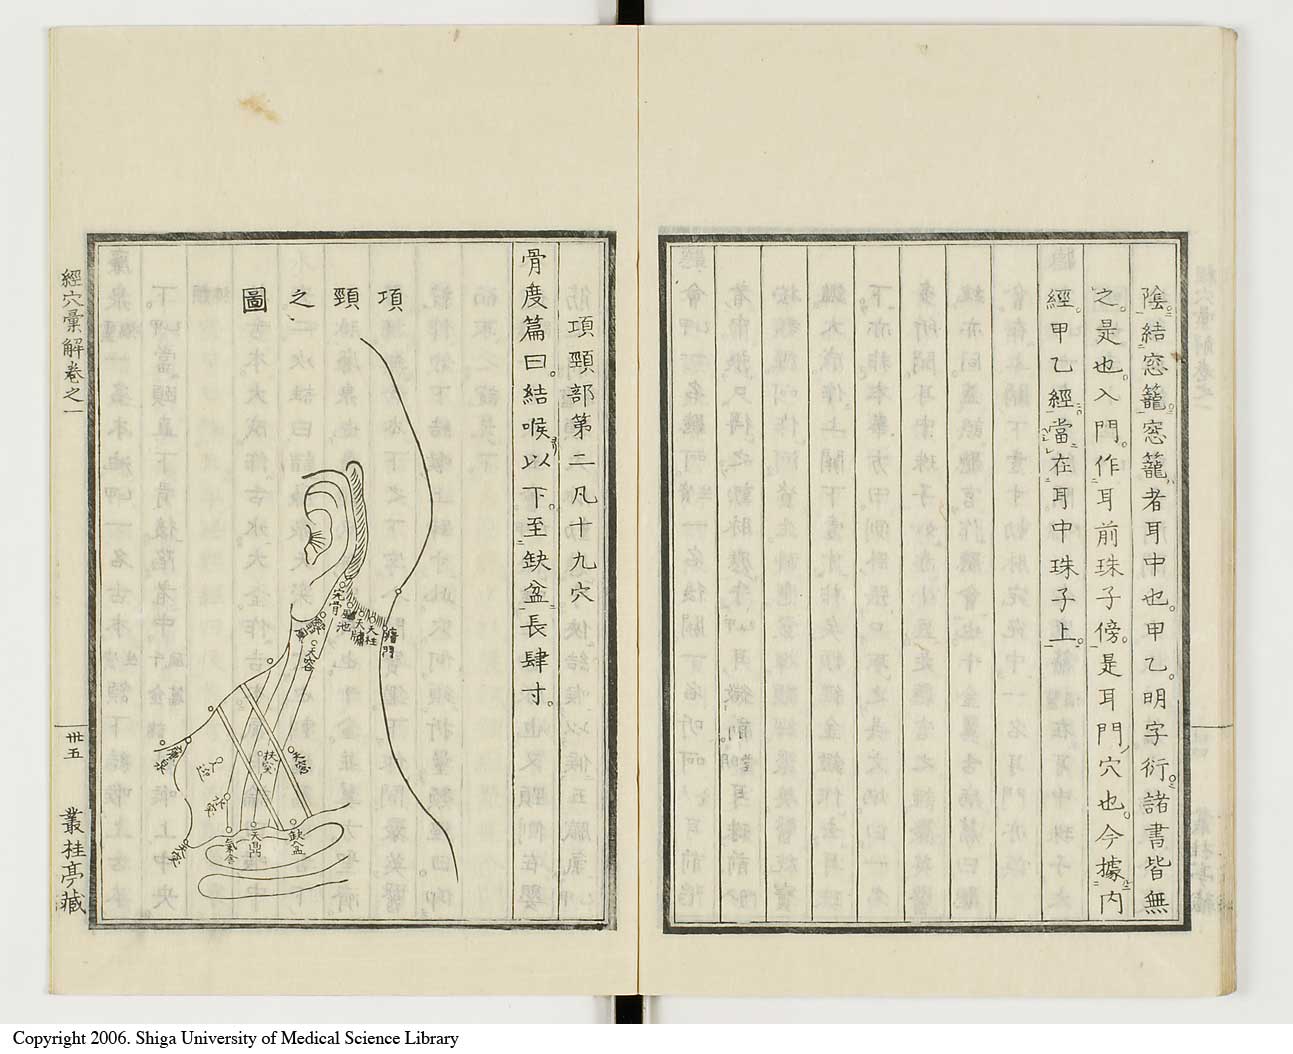 陰結窓籠窓籠者耳中也甲乙明字衍諸書皆無
之是也入門作耳前珠子傍是耳門穴也今據內
經甲乙經當在耳中珠子上
項頸部第二凡十九穴
骨度篇曰結喉以下至缺盆長肆寸
項頸之圖
瘖門
天柱
天牖
完骨
天容
天窓
扶突
人迎
水突
缺盆
天鼎
氣舍
天突
經穴彙解卷之一
卅五
叢桂亭藏
Copyright 2006. Shiga University of Medical Science Library